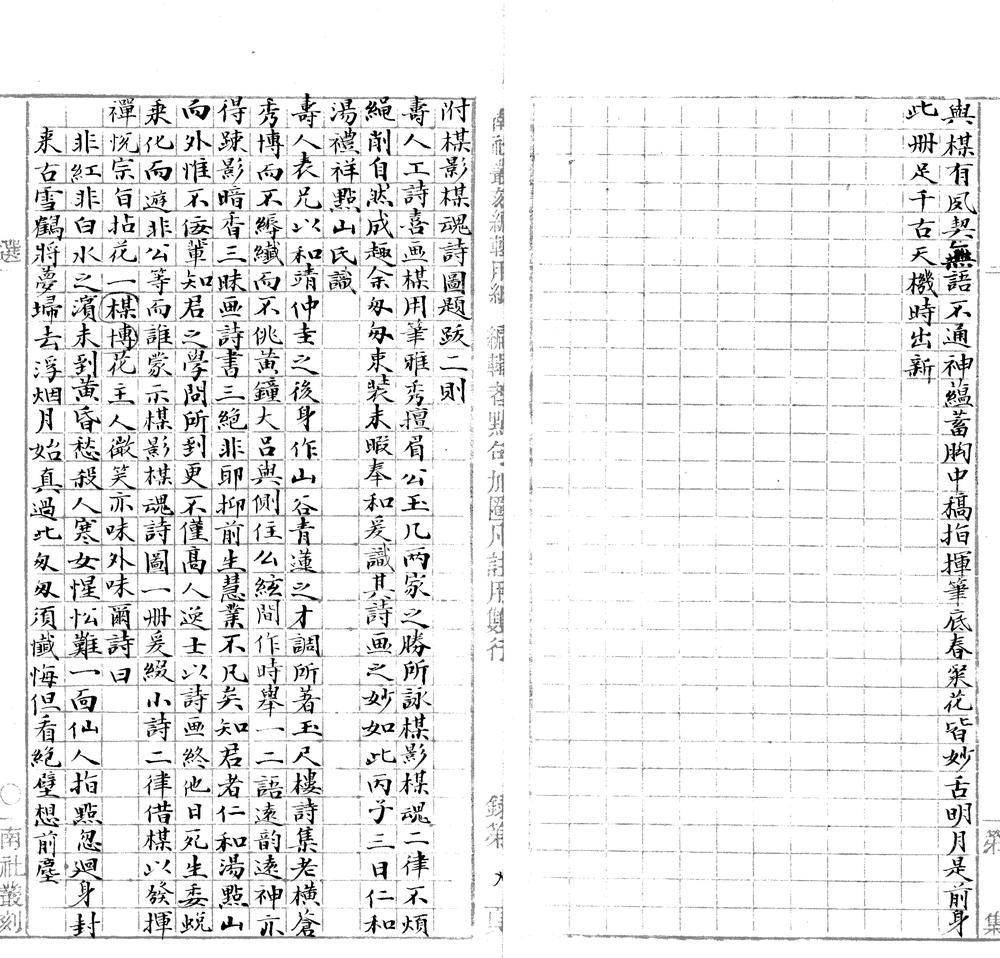 與楳有夙契無語不通神蘊蓄胸中稿指揮筆底春粲花皆妙舌明月是前身
此冊足千古天機時出新
第　集
南社叢刻編輯用紙　編輯者點句加圈凡註用雙行
附楳影楳魂詩圖題跋二則
壽人工詩喜畫楳用筆雅秀擅眉公玉几兩家之勝所詠楳影楳魂二律不煩
繩削自然成趣余匆匆束裝未暇奉和爰識其詩畫之妙如此丙子三日仁和
湯禮祥點山氏識
壽人表兄以和靖仲圭之後身作山谷青蓮之才調所著玉尺樓詩集老橫蒼
秀博而不縟纖而不佻黃鐘大呂與側住么絃間作時舉一二語遠韵遠神亦
得踈影暗香三昧画詩書三絕非耶抑前生慧業不凡矣知君者仁和湯點山
而外惟不佞輩知君之學問所到更不僅高人逸士以詩画終他日死生委蛻
乘化而遊非公等而誰蒙示楳影楳魂詩圖一冊爰綴小詩二律借楳以發揮
禪悅宗旨拈花一楳博花主人微笑亦味外味爾詩曰
非紅非白水之濱未到黃昏愁殺人寒女惺忪難一面仙人指點忽迴身封
來古雪鶴將夢埽去浮烟月始真過此匆匆須懺悔但看絕壁想前塵
選　〇　南社叢刻